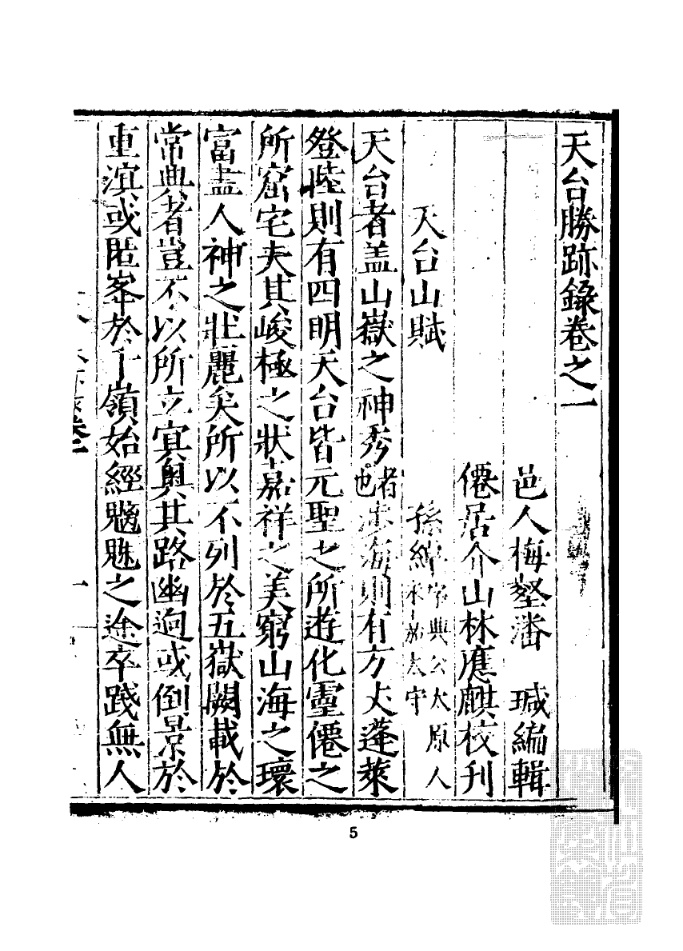 天台勝跡錄卷之一
邑人梅壑潘 瑊編輯
僊居介山林應麒校刊
天台山賦 孫綽字興公太原人永嘉太守
天台者盖山嶽之神秀者也涉海則有方丈蓬萊
登陸則有四明天台皆元聖之所遊化靈僊之
所窟宅夫其峻極之狀嘉祥之美窮山海之瓌
富盡人神之壯麗矣所以不列於五嶽闕載於
常典者豈不以所立㝠奥其路幽迥或倒景於
重溟或匿峯於千嶺始經魑魅之途卒踐無人
5